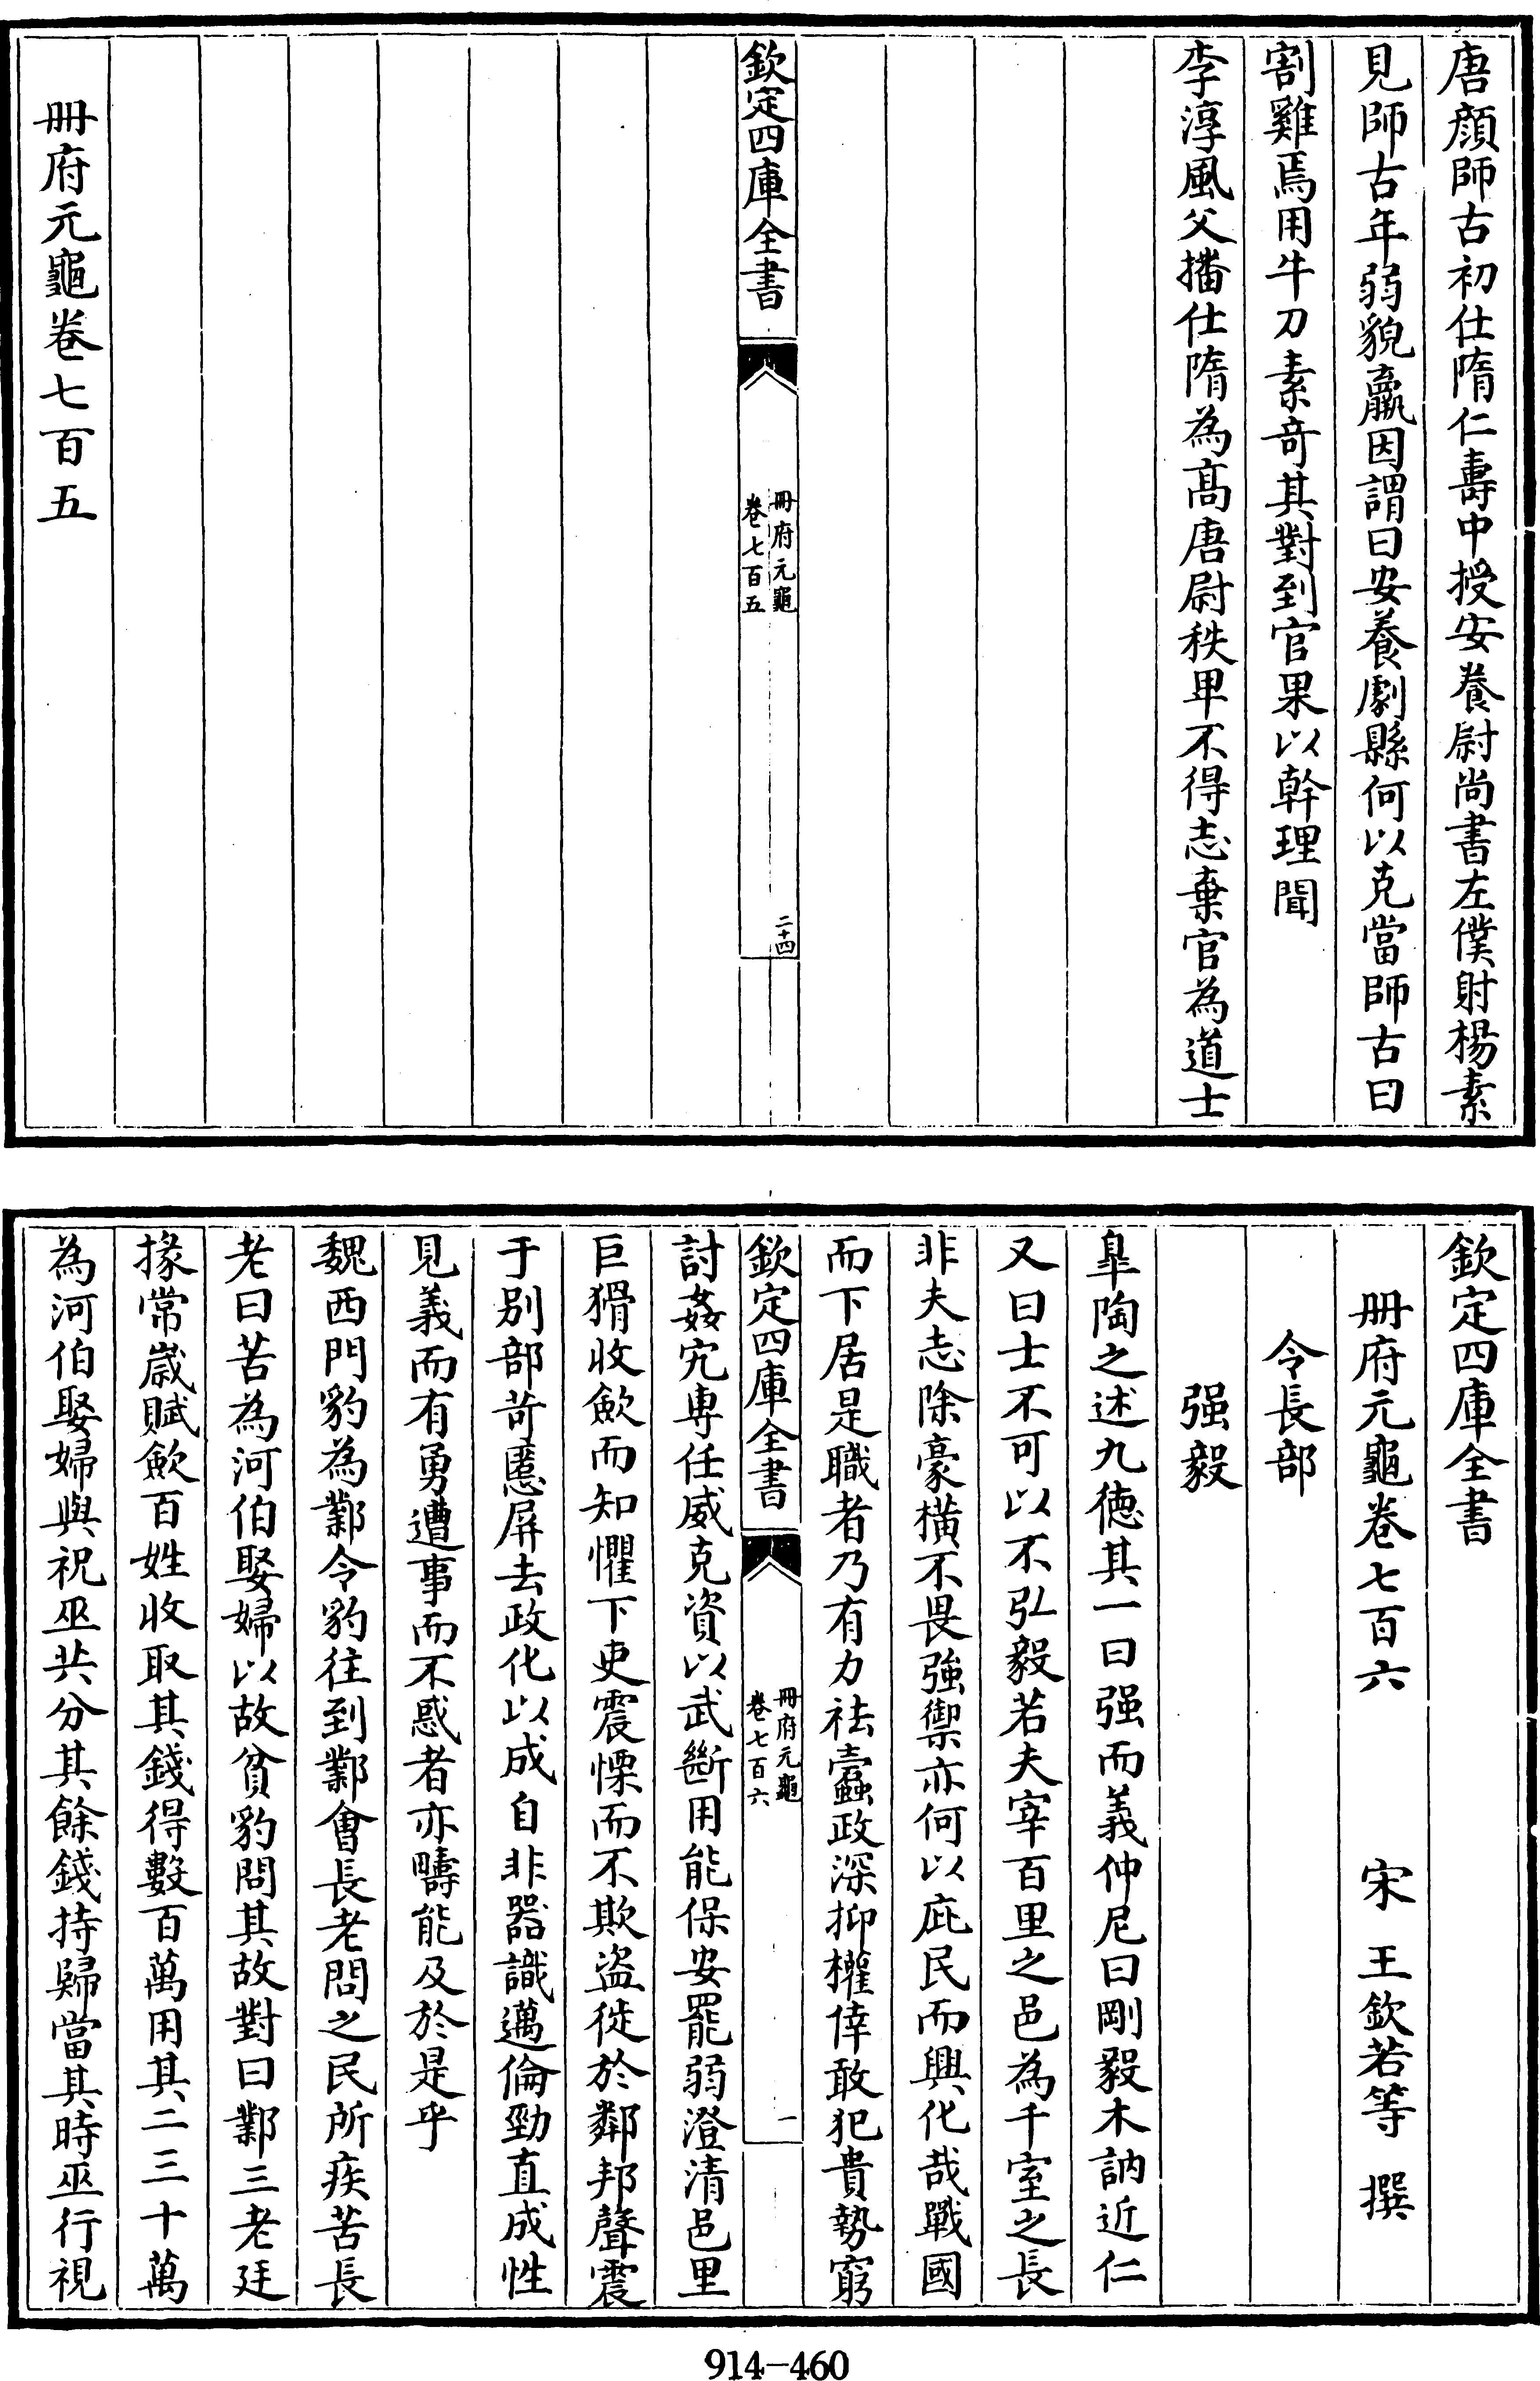 唐顔師古初仕隋仁壽中授安養尉尚書左僕射楊素
見師古年弱貌羸因謂曰安養劇縣何以克當師古曰
割雞焉用牛刀素奇其對到官果以幹理聞
李淳風父播仕隋為高唐尉秩卑不得志棄官為道士
欽定四庫全書
冊府元龜
卷七百五
二十四
冊府元龜卷七百五
欽定四庫全書
冊府元龜卷七百六 宋 王欽若等 撰
令長部
强毅
臯陶之述九德其一曰强而義仲尼曰剛毅木訥近仁
又曰士不可以不弘毅若夫宰百里之邑為千室之長
非夫志除豪橫不畏強禦亦何以庇民而興化哉戰國
而下居是職者乃有力祛蠧政深抑權倖敢犯貴勢窮
欽定四庫全書
冊府元龜
卷七百六
一
討姦宄專任威克資以武斷用能保安罷弱澄清邑里
巨猾收歛而知懼下吏震慄而不欺盜徙於鄰邦聲震
于别部苛慝屏去政化以成自非器識邁倫勁直成性
見義而有勇遭事而不惑者亦疇能及於是乎
魏西門豹為鄴令豹往到鄴會長老問之民所疾苦長
老曰苦為河伯娶婦以故貧豹問其故對曰鄴三老廷
掾常歲賦歛百姓收取其錢得數百萬用其二三十萬
為河伯娶婦與祝巫共分其餘錢持歸當其時巫行視
914-460